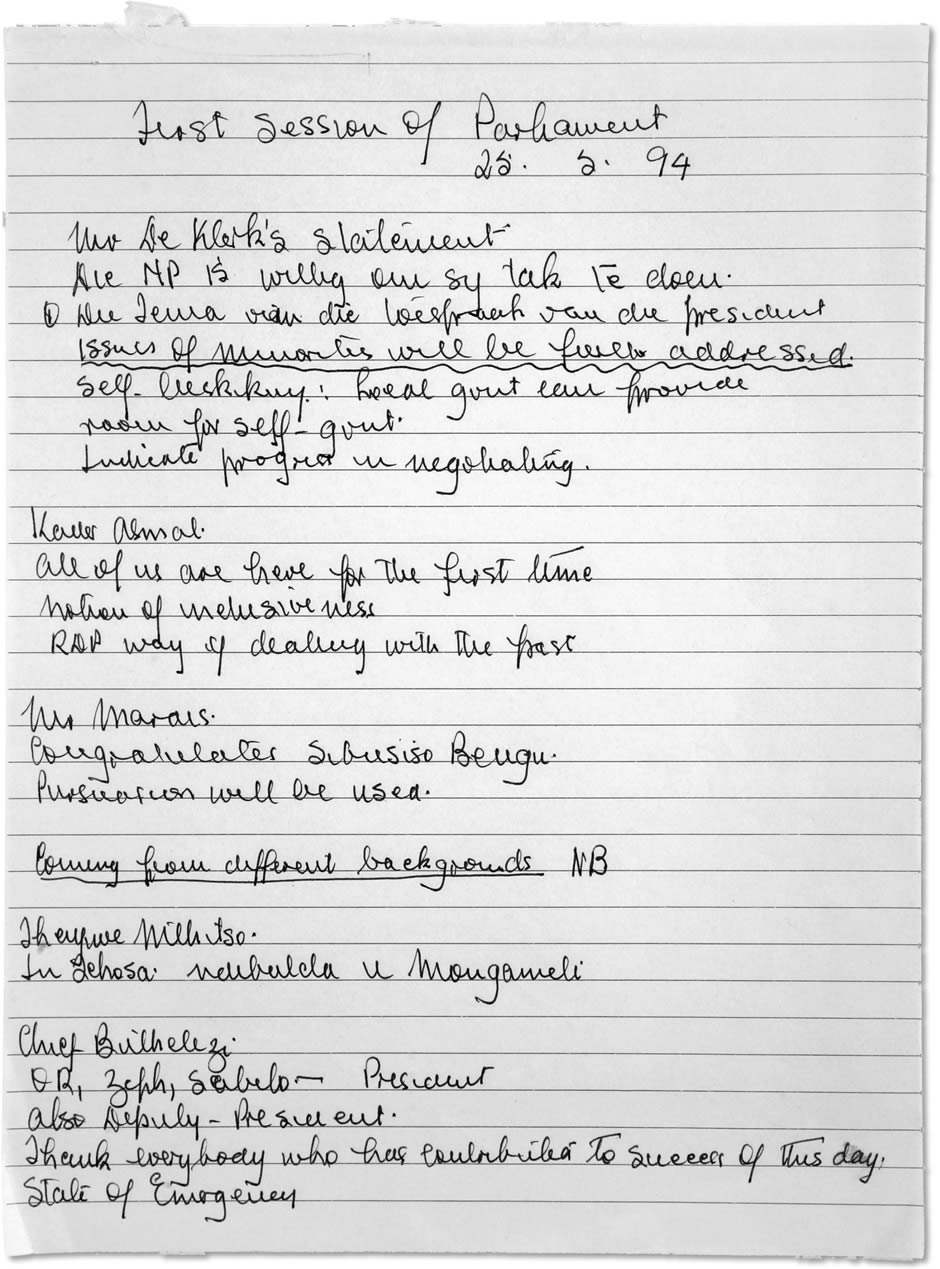 First Session of Parliament
25. 5. 94
Mr De Klerk's statement
Die NP is willig om sy tak te doen.
① Die Tema van die toespraak van die president
Issues of minorities will be further addressed.
Self- : Local govt can provide
room for self-govt.
Indicate progress in negotiating.
Kader Asmal.
All of us are here for the first time
Notion of inclusiveness
RDP way of dealing with the past
Mr Marais.
Congratulates Sibusiso Bengu.
Persuasion will be used.
Coming from different backgrounds NB
Thenjiwe Mthintso.
In Xhosa. ndibulela u Mongameli
Chief Buthelezi.
OR, Zeph, Sabelo — President
Also Deputy-President.
Thank everybody who has contributed to success of this day.
State of Emergency